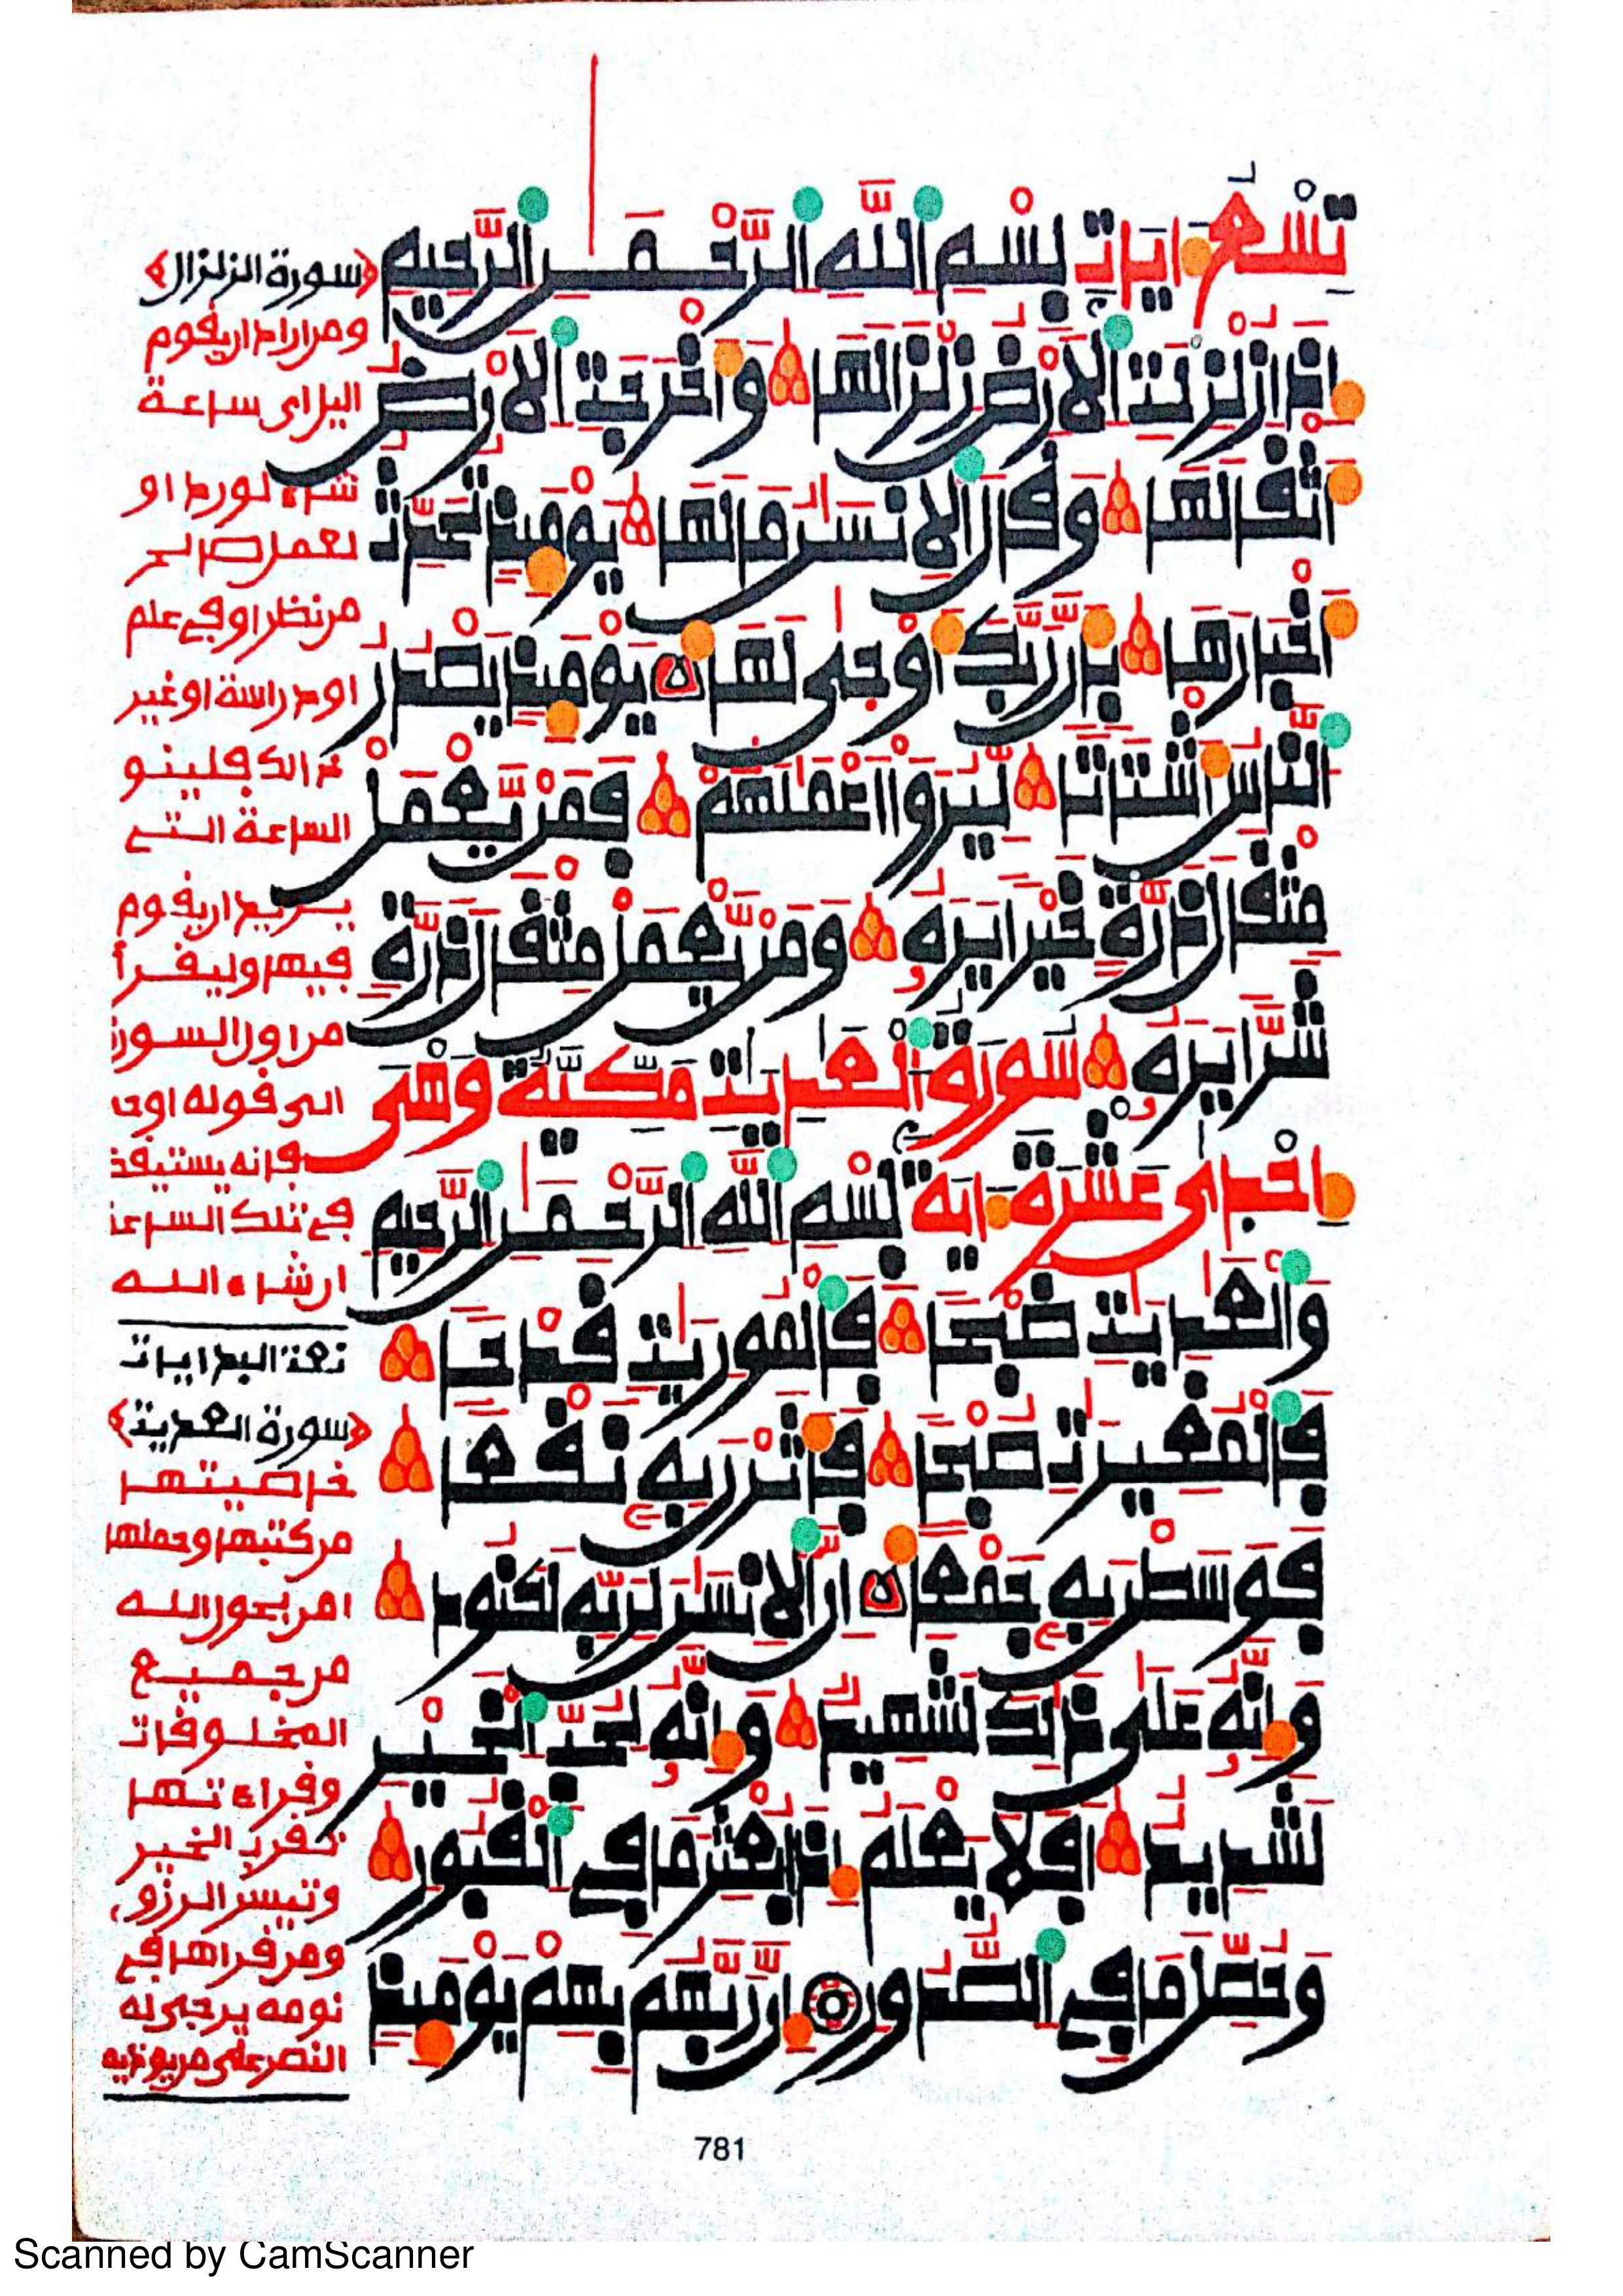 تِسْعُ ءَايَاتٍ بِسْمِ اللَّهِ الرَّحْمَٰنِ الرَّحِيمِ
إِذَا زُلْزِلَتِ الْأَرْضُ زِلْزَالَهَا وَأَخْرَجَتِ الْأَرْضُ
أَثْقَالَهَا وَقَالَ الْإِنسَٰنُ مَا لَهَا يَوْمَئِذٍ تُحَدِّثُ
أَخْبَارَهَا بِأَنَّ رَبَّكَ أَوْحَىٰ لَهَا يَوْمَئِذٍ يَصْدُرُ
النَّاسُ أَشْتَاتًا لِّيُرَوْا أَعْمَٰلَهُمْ فَمَنْ يَّعْمَلْ
مِثْقَالَ ذَرَّةٍ خَيْرًا يَرَهُ وَمَنْ يَّعْمَلْ مِثْقَالَ ذَرَّةٍ
شَرًّا يَرَهُ سُورَةُ الْعَٰدِيَٰتِ مَكِّيَّةٌ وَهْىَ
إِحْدَىٰ عَشْرَةَ ءَايَةً بِسْمِ اللَّهِ الرَّحْمَٰنِ الرَّحِيمِ
وَالْعَٰدِيَٰتِ ضَبْحًا فَالْمُورِيَٰتِ قَدْحًا
فَالْمُغِيرَٰتِ صُبْحًا فَأَثَرْنَ بِهِ نَقْعًا
فَوَسَطْنَ بِهِ جَمْعًا إِنَّ الْإِنسَٰنَ لِرَبِّهِ لَكَنُودٌ
وَإِنَّهُ عَلَىٰ ذَٰلِكَ لَشَهِيدٌ وَإِنَّهُ لِحُبِّ الْخَيْرِ
لَشَدِيدٌ أَفَلَا يَعْلَمُ إِذَا بُعْثِرَ مَا فِى الْقُبُورِ
وَحُصِّلَ مَا فِى الصُّدُورِ إِنَّ رَبَّهُم بِهِمْ يَوْمَئِذٍ
﴿سورة الزلزال﴾
ومن اراد ان يقوم
اليل اى ساعة
شاء لورد او
لعمل صالح
من نظر او في علم
او دراسة او غير
ذالك فلينو
الساعة التي
يريد ان يقوم
فيها وليقرأ
من اول السورة
الى قوله اوحى
فانه يستيقظ
في تلك الساعة
ان شاء الله
نعت البدايات
﴿سورة العديت﴾
خاصيتها
من كتبها وحملها
امن بعون الله
من جميع
المخلوقات
وقراءتها
الخير
وتيسر الرزق
ومن قراها في
نومه يرجى له
النصر على من يوذيه
781
Scanned by CamScanner